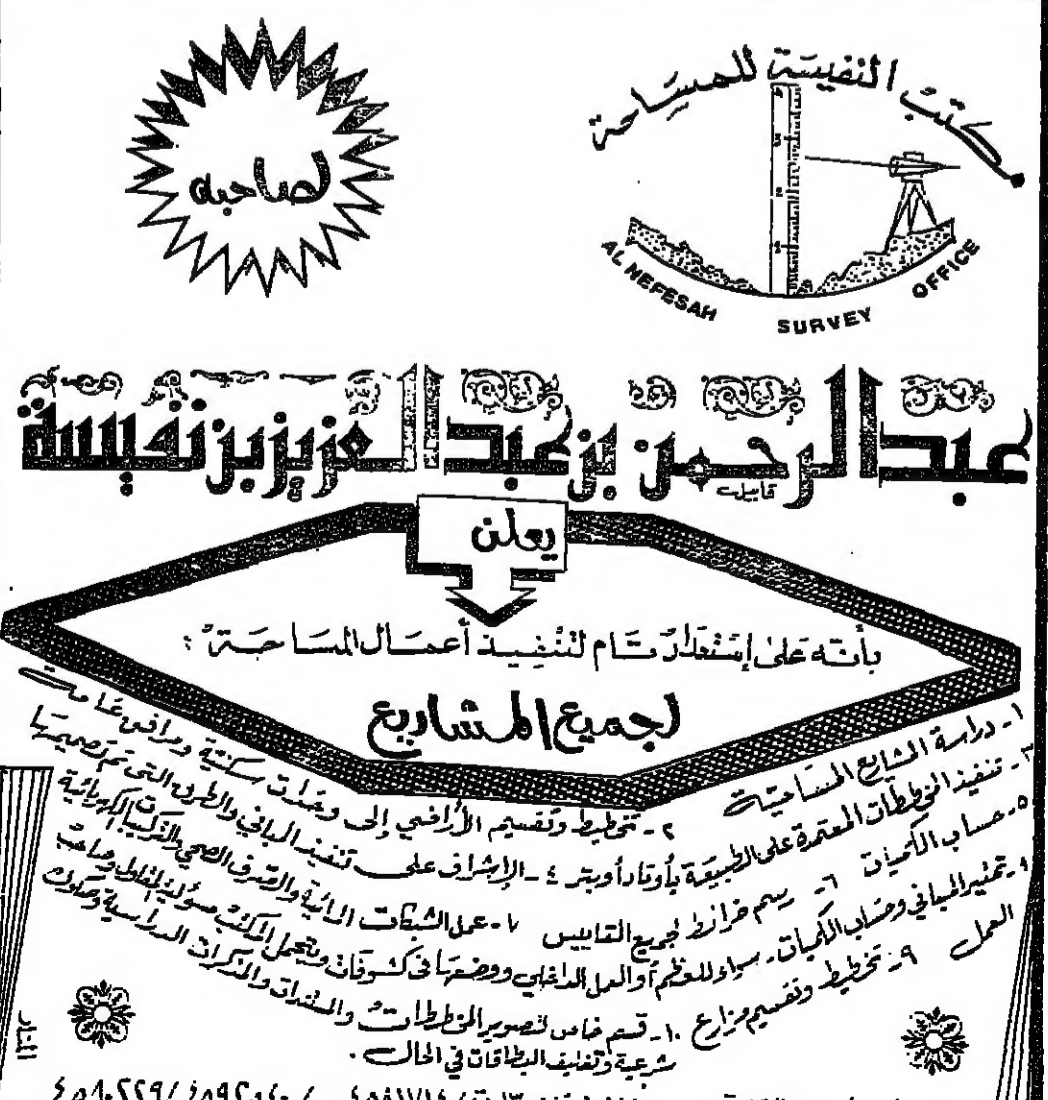 مكتب النفيسة للمساحة
AL NEFESAH SURVEY OFFICE
لصاحبه
عبد الرحمن بن عبد العزيز بن نفيسة
يعلن
بأنه على إستعداد تام لتنفيذ أعمال المساحة :
لجميع المشاريع
١- دراسة المشاريع المساحية ٢- تخطيط وتقسيم الأراضي إلى وحدات سكنية ومرافق عامة
٣- تنفيذ المخططات المعتمدة على الطبيعة بأوتاد أو بتر ٤- الإشراف على تنفيذ المباني والطرق التي تم تصميمها
٥- حساب الكميات ٦- رسم خرائط لجميع المقاييس ٧- عمل الشبكات المائية والصرف الصحي والتركيبات الكهربائية
٨- تمتير المباني وحساب الكميات - سواء للعظم أو العمل الداخلي ووضعها في كشوفات ويتحمل المكتب مسؤولية المقاول وصاحب
العمل ٩- تخطيط وتقسيم مزارع ١٠- قسم خاص لتصوير المخططات والمستندات والمذكرات الدراسية وصكوك
شرعية وتغليف البطاقات في الحال .
المنار